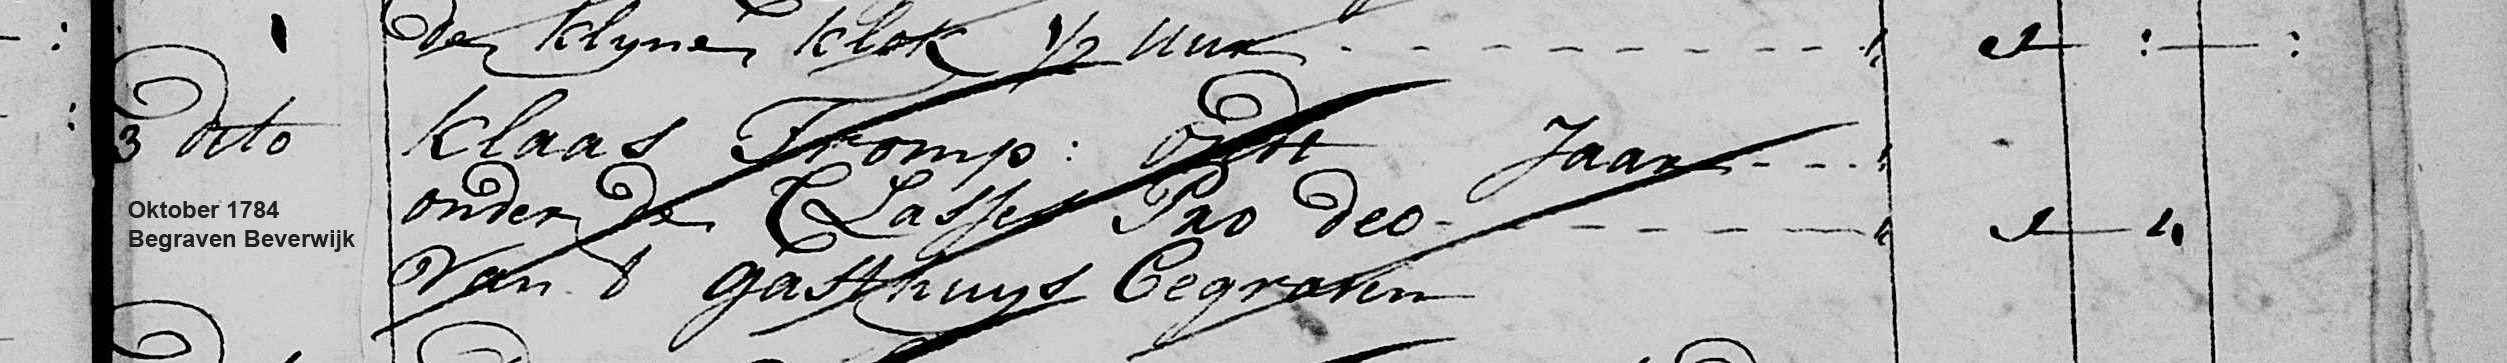 de klyne klok ½ uur - - - - - - - - - - - " 1 — : — :
3 dito Klaas Tromp: oudt Jaar - - - "
onder de Classe Pro deo - - - - - - - " 1 — 4
Oktober 1784
Begraven Beverwijk
Van t gasthuys Begraven